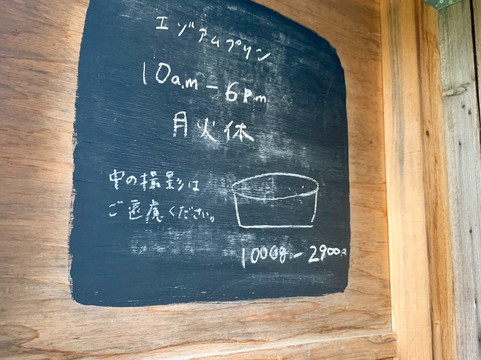 エゾアムプリン
10a.m-6p.m
月火休
中の撮影は
ご遠慮ください。
1000g-2900円